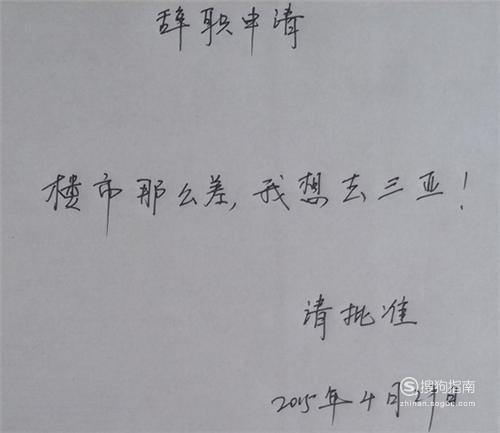 辞职申请
楼市那么差，我想去三亚！
请批准
2015年4月
搜狗指南
zhinan.sogou.com